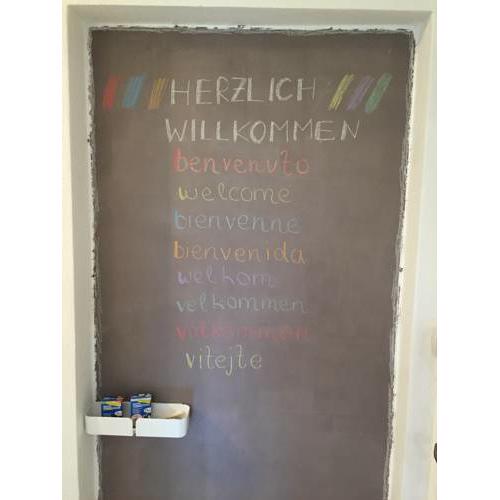 HERZLICH
WILLKOMMEN
benvenuto
welcome
bienvenne
bienvenida
welkom
velkommen
välkommen
vitejte